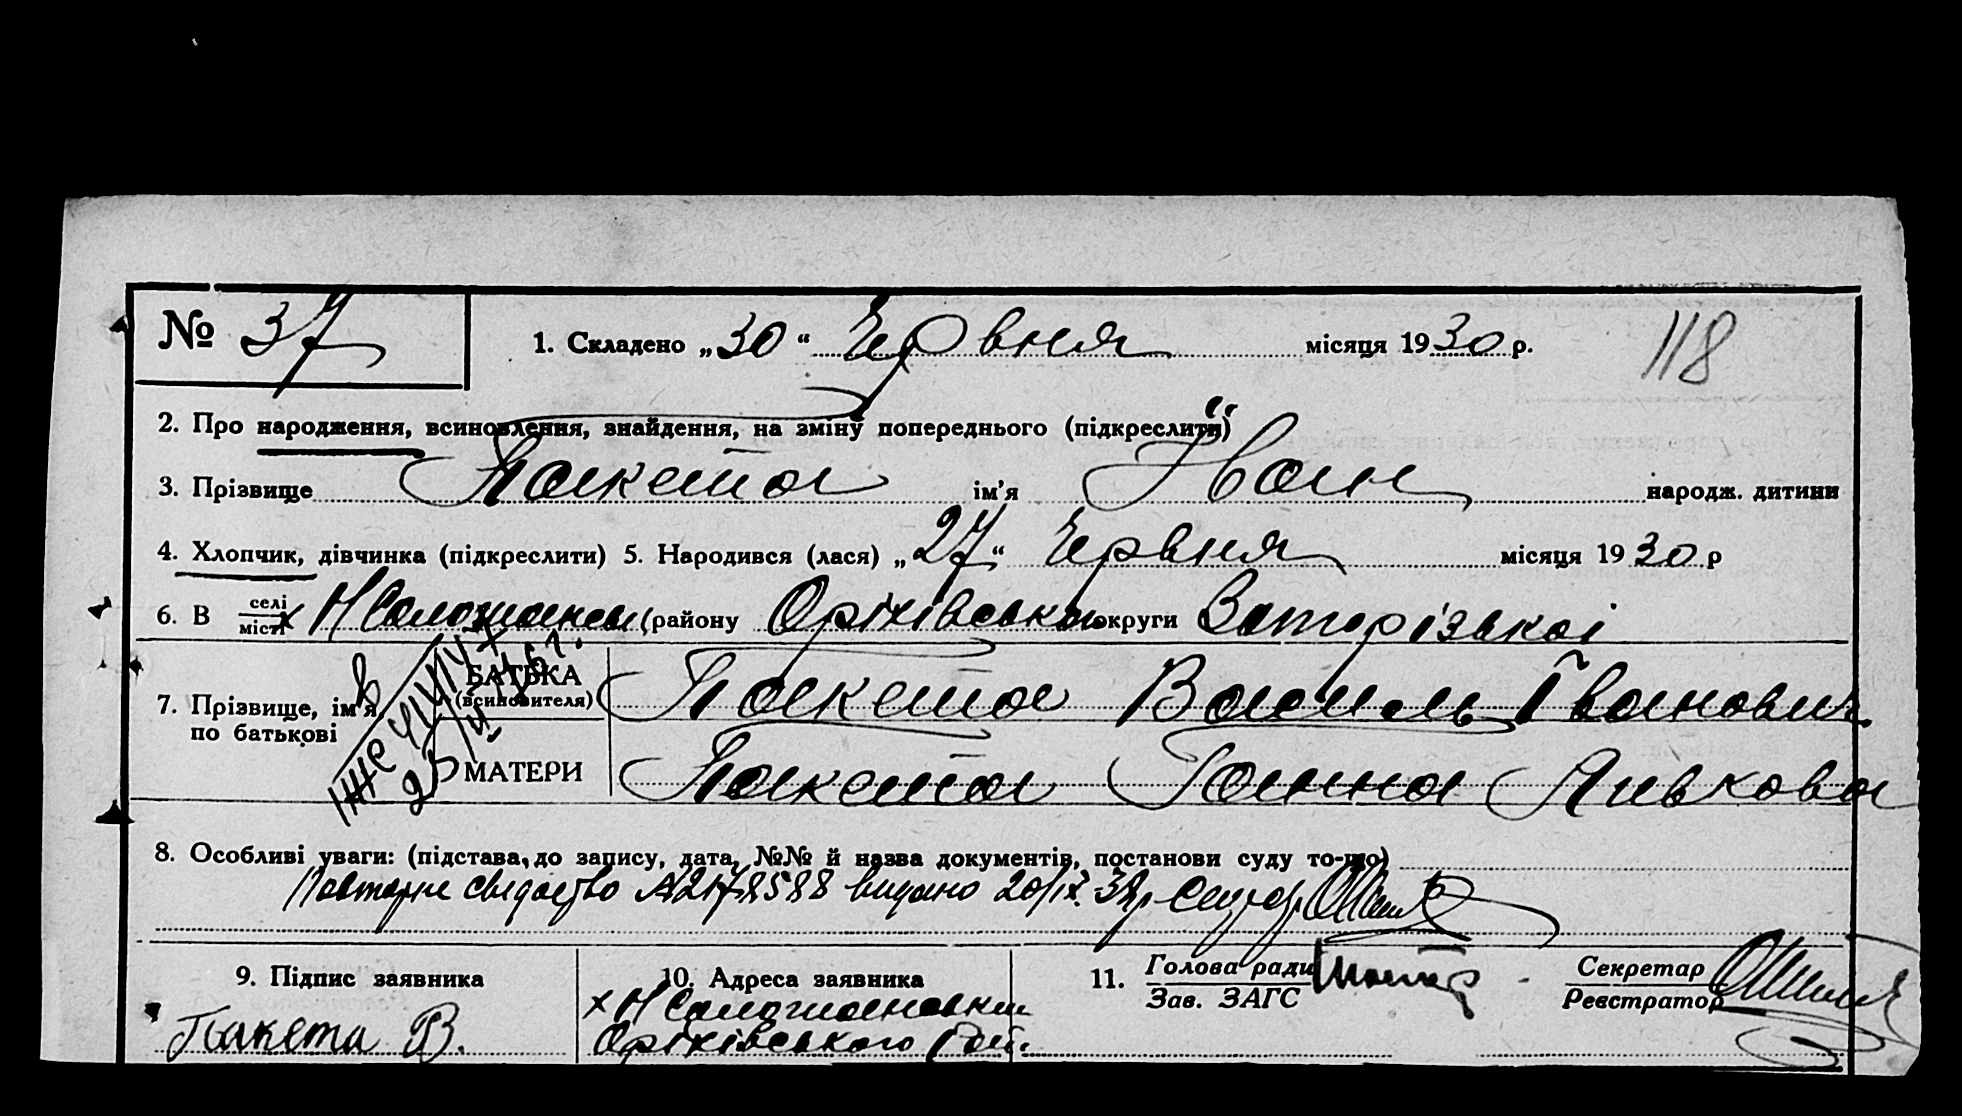 № 37
1. Складено „30“ Червня місяця 1930 р.
118
2. Про народження, всиновлення, знайдення, на зміну попереднього (підкреслити)
3. Прізвище Пакета ім’я Іван народж. дитини
4. Хлопчик, дівчинка (підкреслити) 5. Народився (лася) „27“ Червня місяця 1930 р
6. В селі місті х Н району Оріхівського округи Запорізької
7. Прізвище, ім’я по батькові
БАТЬКА (всиновителя) Пакета Василь Іванович
МАТЕРИ Пакета Ганна
8. Особливі уваги: (підстава, до запису, дата, №№ й назва документів, постанови суду то-що)
Повторне свідоцтво А2178588 видано 20/ІХ.
9. Підпис заявника
Пакета В.
10. Адреса заявника
х Н
Оріхівського Рай.
11. Голова ради
Зав. ЗАГС
Секретар
Реєстратор